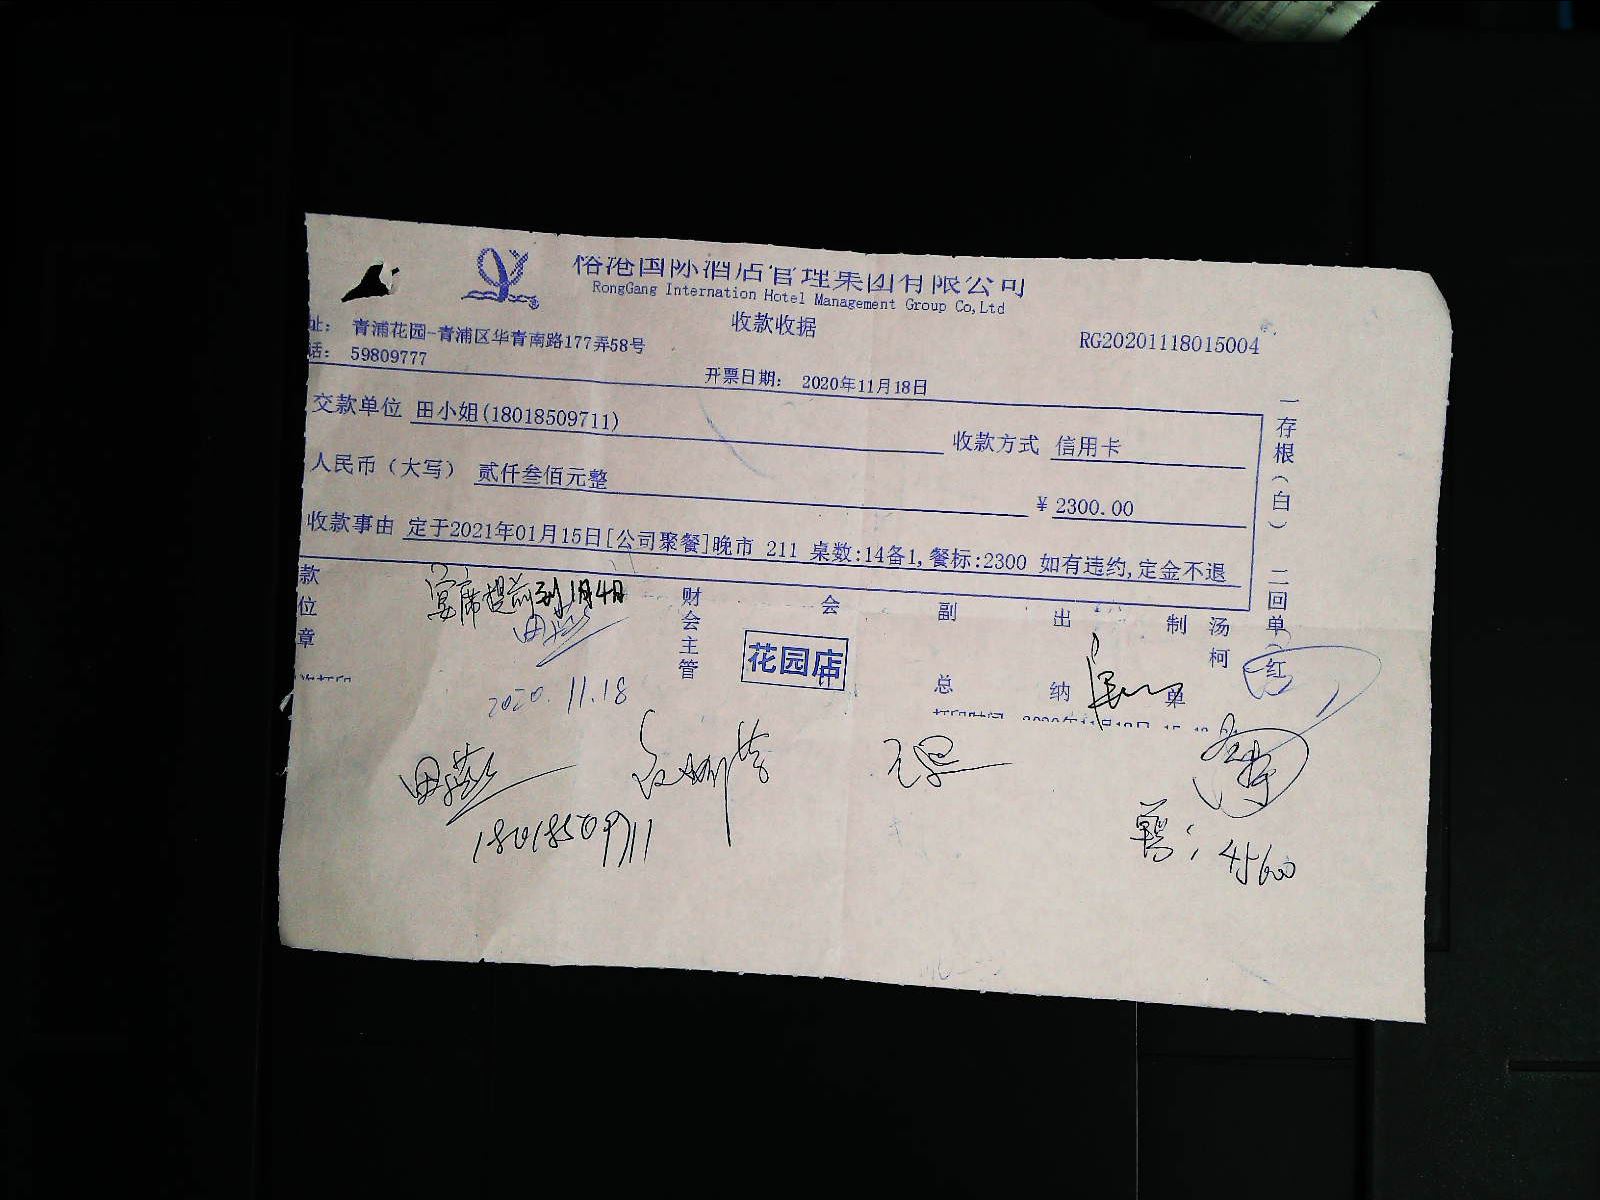 裕港国际酒店管理集团有限公司
RongGang Internation Hotel Management Group Co,Ltd
收款收据
RG20201118015004
址： 青浦花园-青浦区华青南路177弄58号
话： 59809777
开票日期： 2020年11月18日
交款单位 田小姐(18018509711)
收款方式 信用卡
人民币（大写） 贰仟叁佰元整
¥ 2300.00
收款事由 定于2021年01月15日[公司聚餐]晚市 211 桌数:14备1,餐标:2300 如有违约,定金不退
一存根（白） 二回单（红）
款位章
宴席提前到1月4日
田燕
2020.11.18
财会主管
会
花园店
副总
出纳
制单
汤柯
田燕
18018509711